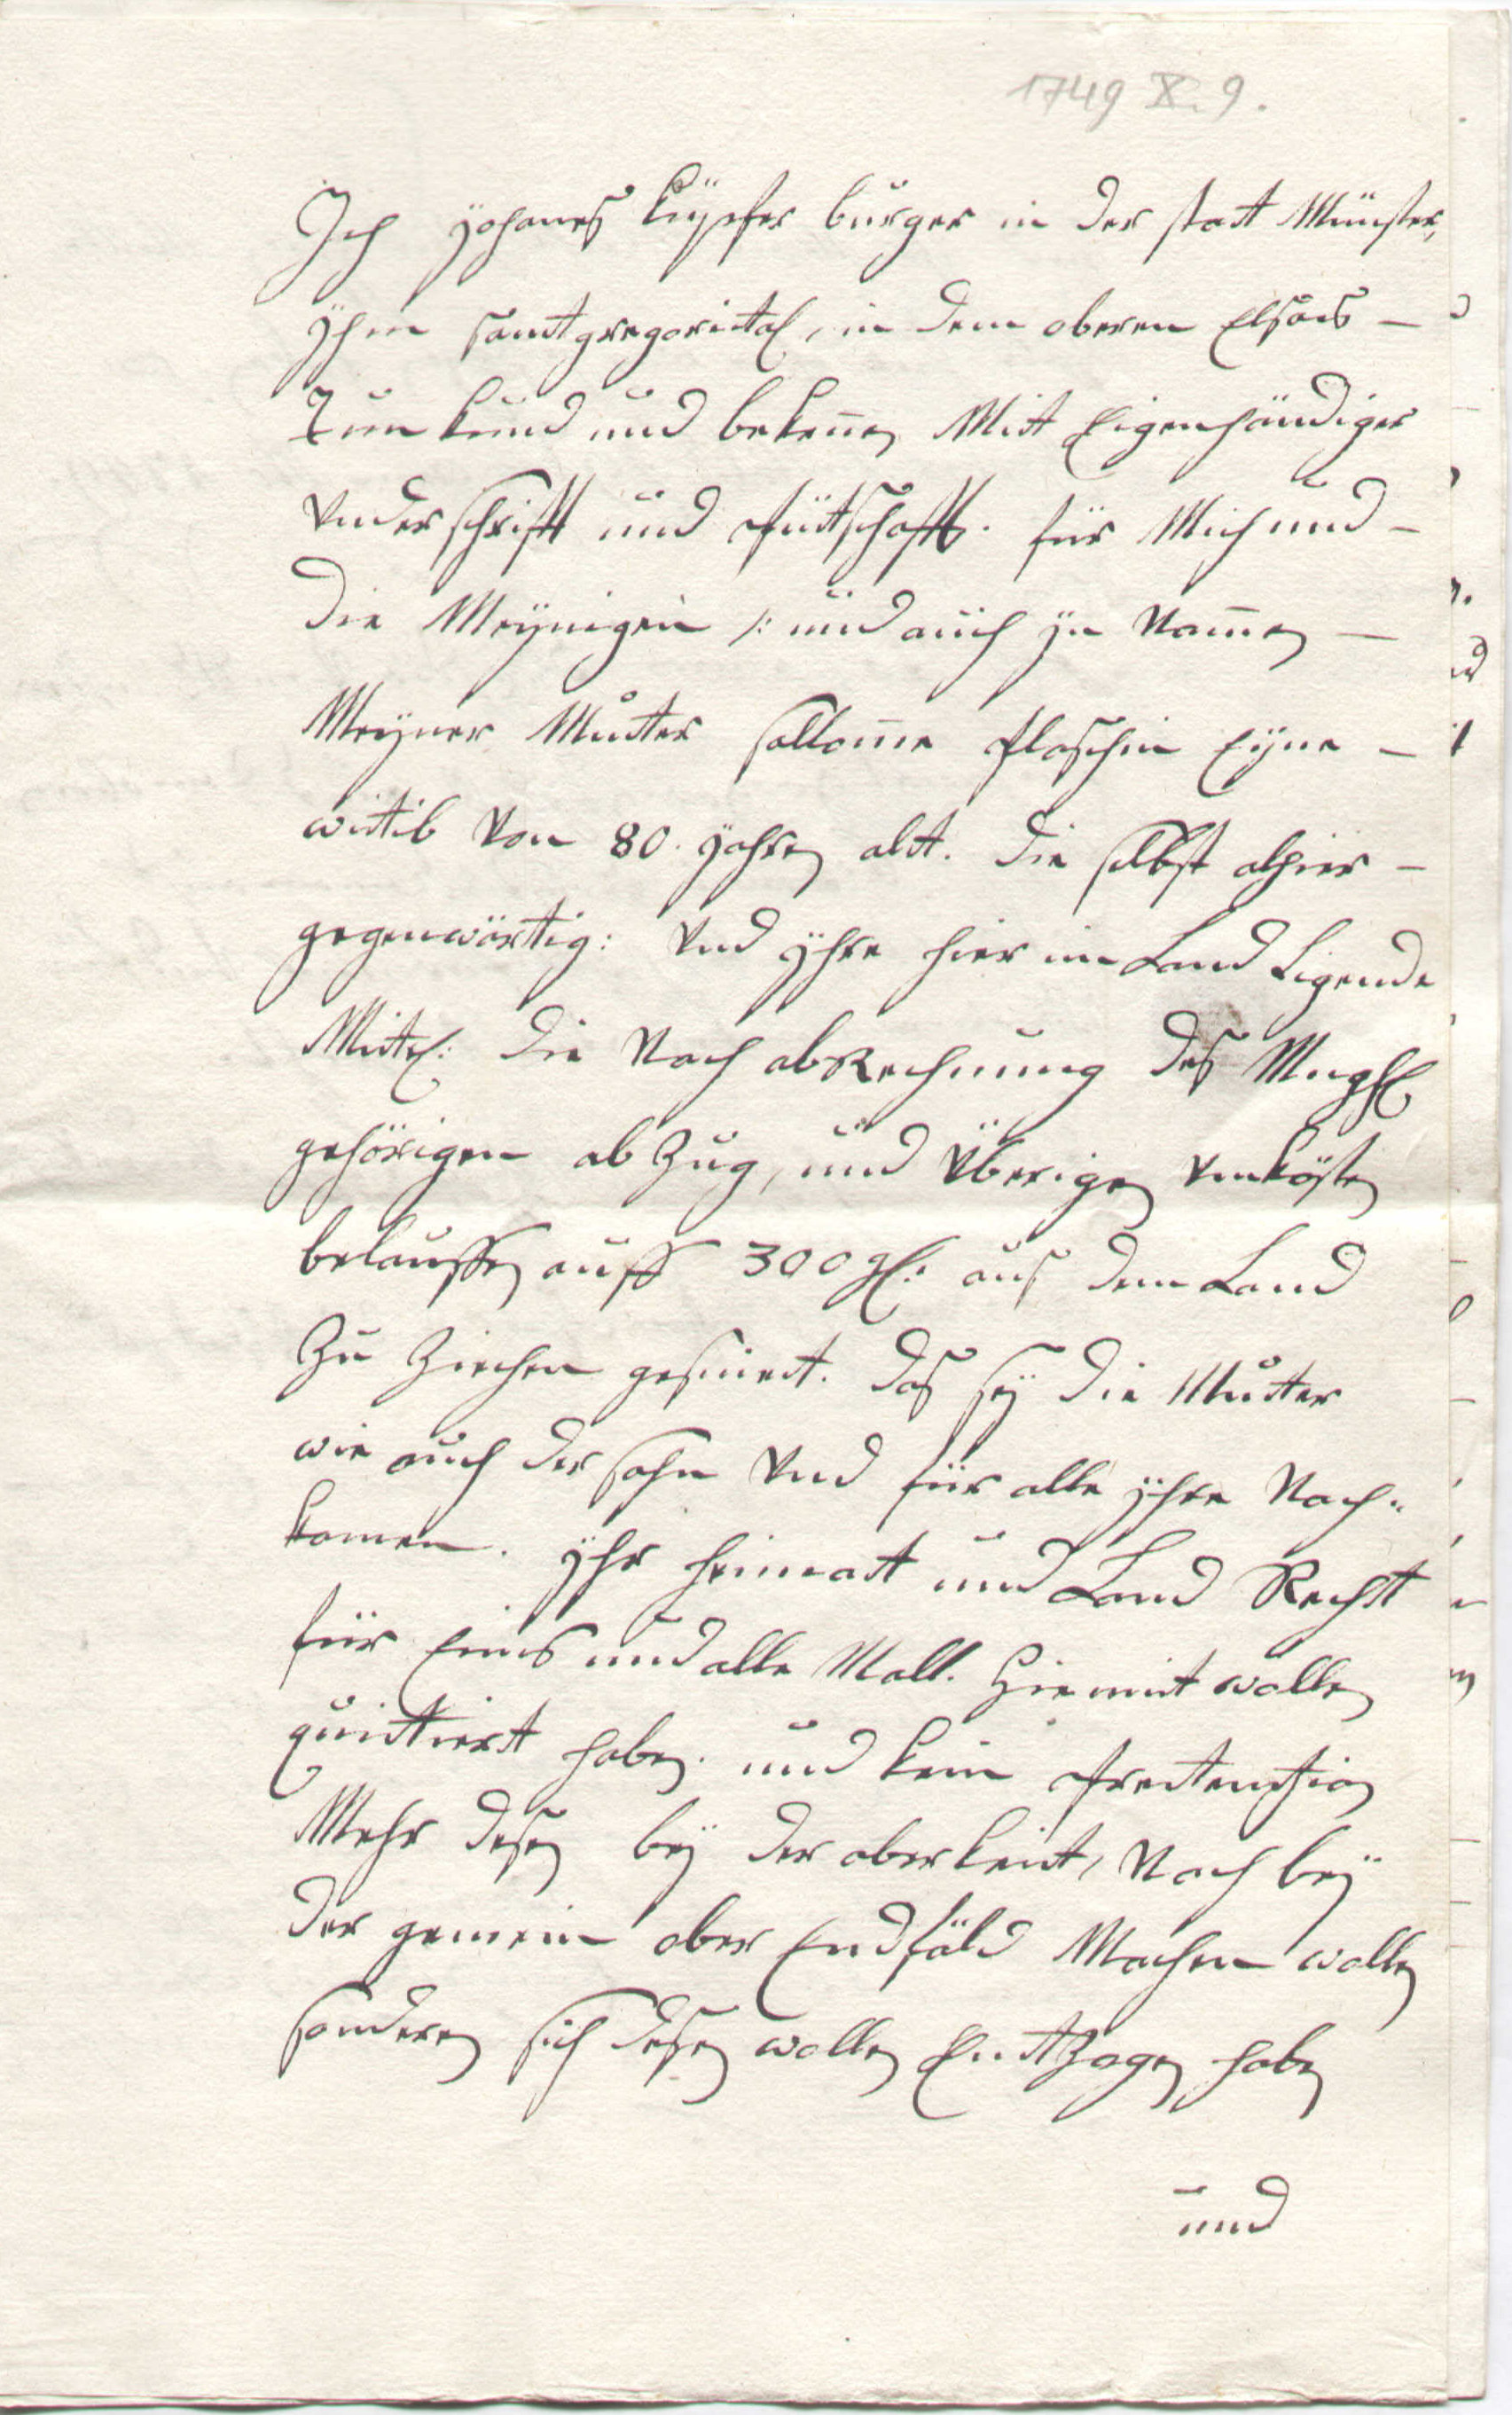 1749 X. 9.
Ich Johanes Küpfer burger in der statt Münster,
yhm santgregorital, in dem oberen Elsas –
Thun kund und bekenne Mitt Eigenhändiger
underschrifft und pütschafft. für Mich und –
die Meynigen /: und auch yn Namen –
Meyner Mutter sallome flaschin Eyne –
witib von 80. yahren alt. die selbst alhier –
gegenwärtig: und yhre hier im Land Ligende
Mitel: die Nach abRechnung des Mngh
gehörigen ab Zug, und überigen unkösten
belauffen auff 300 gl: aus dem Land
Zu Ziechen gesinet. das sey die Mutter
wie auch der sohn und für alle yhre Nach-
komen. yhr heimatt und Land Recht
für Eins und alle Mall. Hiemit wollen
quittiert haben. und kein pretention
Mehr desen bey der oberkeit, Noch bey
der gemein ober Endfäld Machen wollen
sonderen sich desen wollen Entzogen haben
und